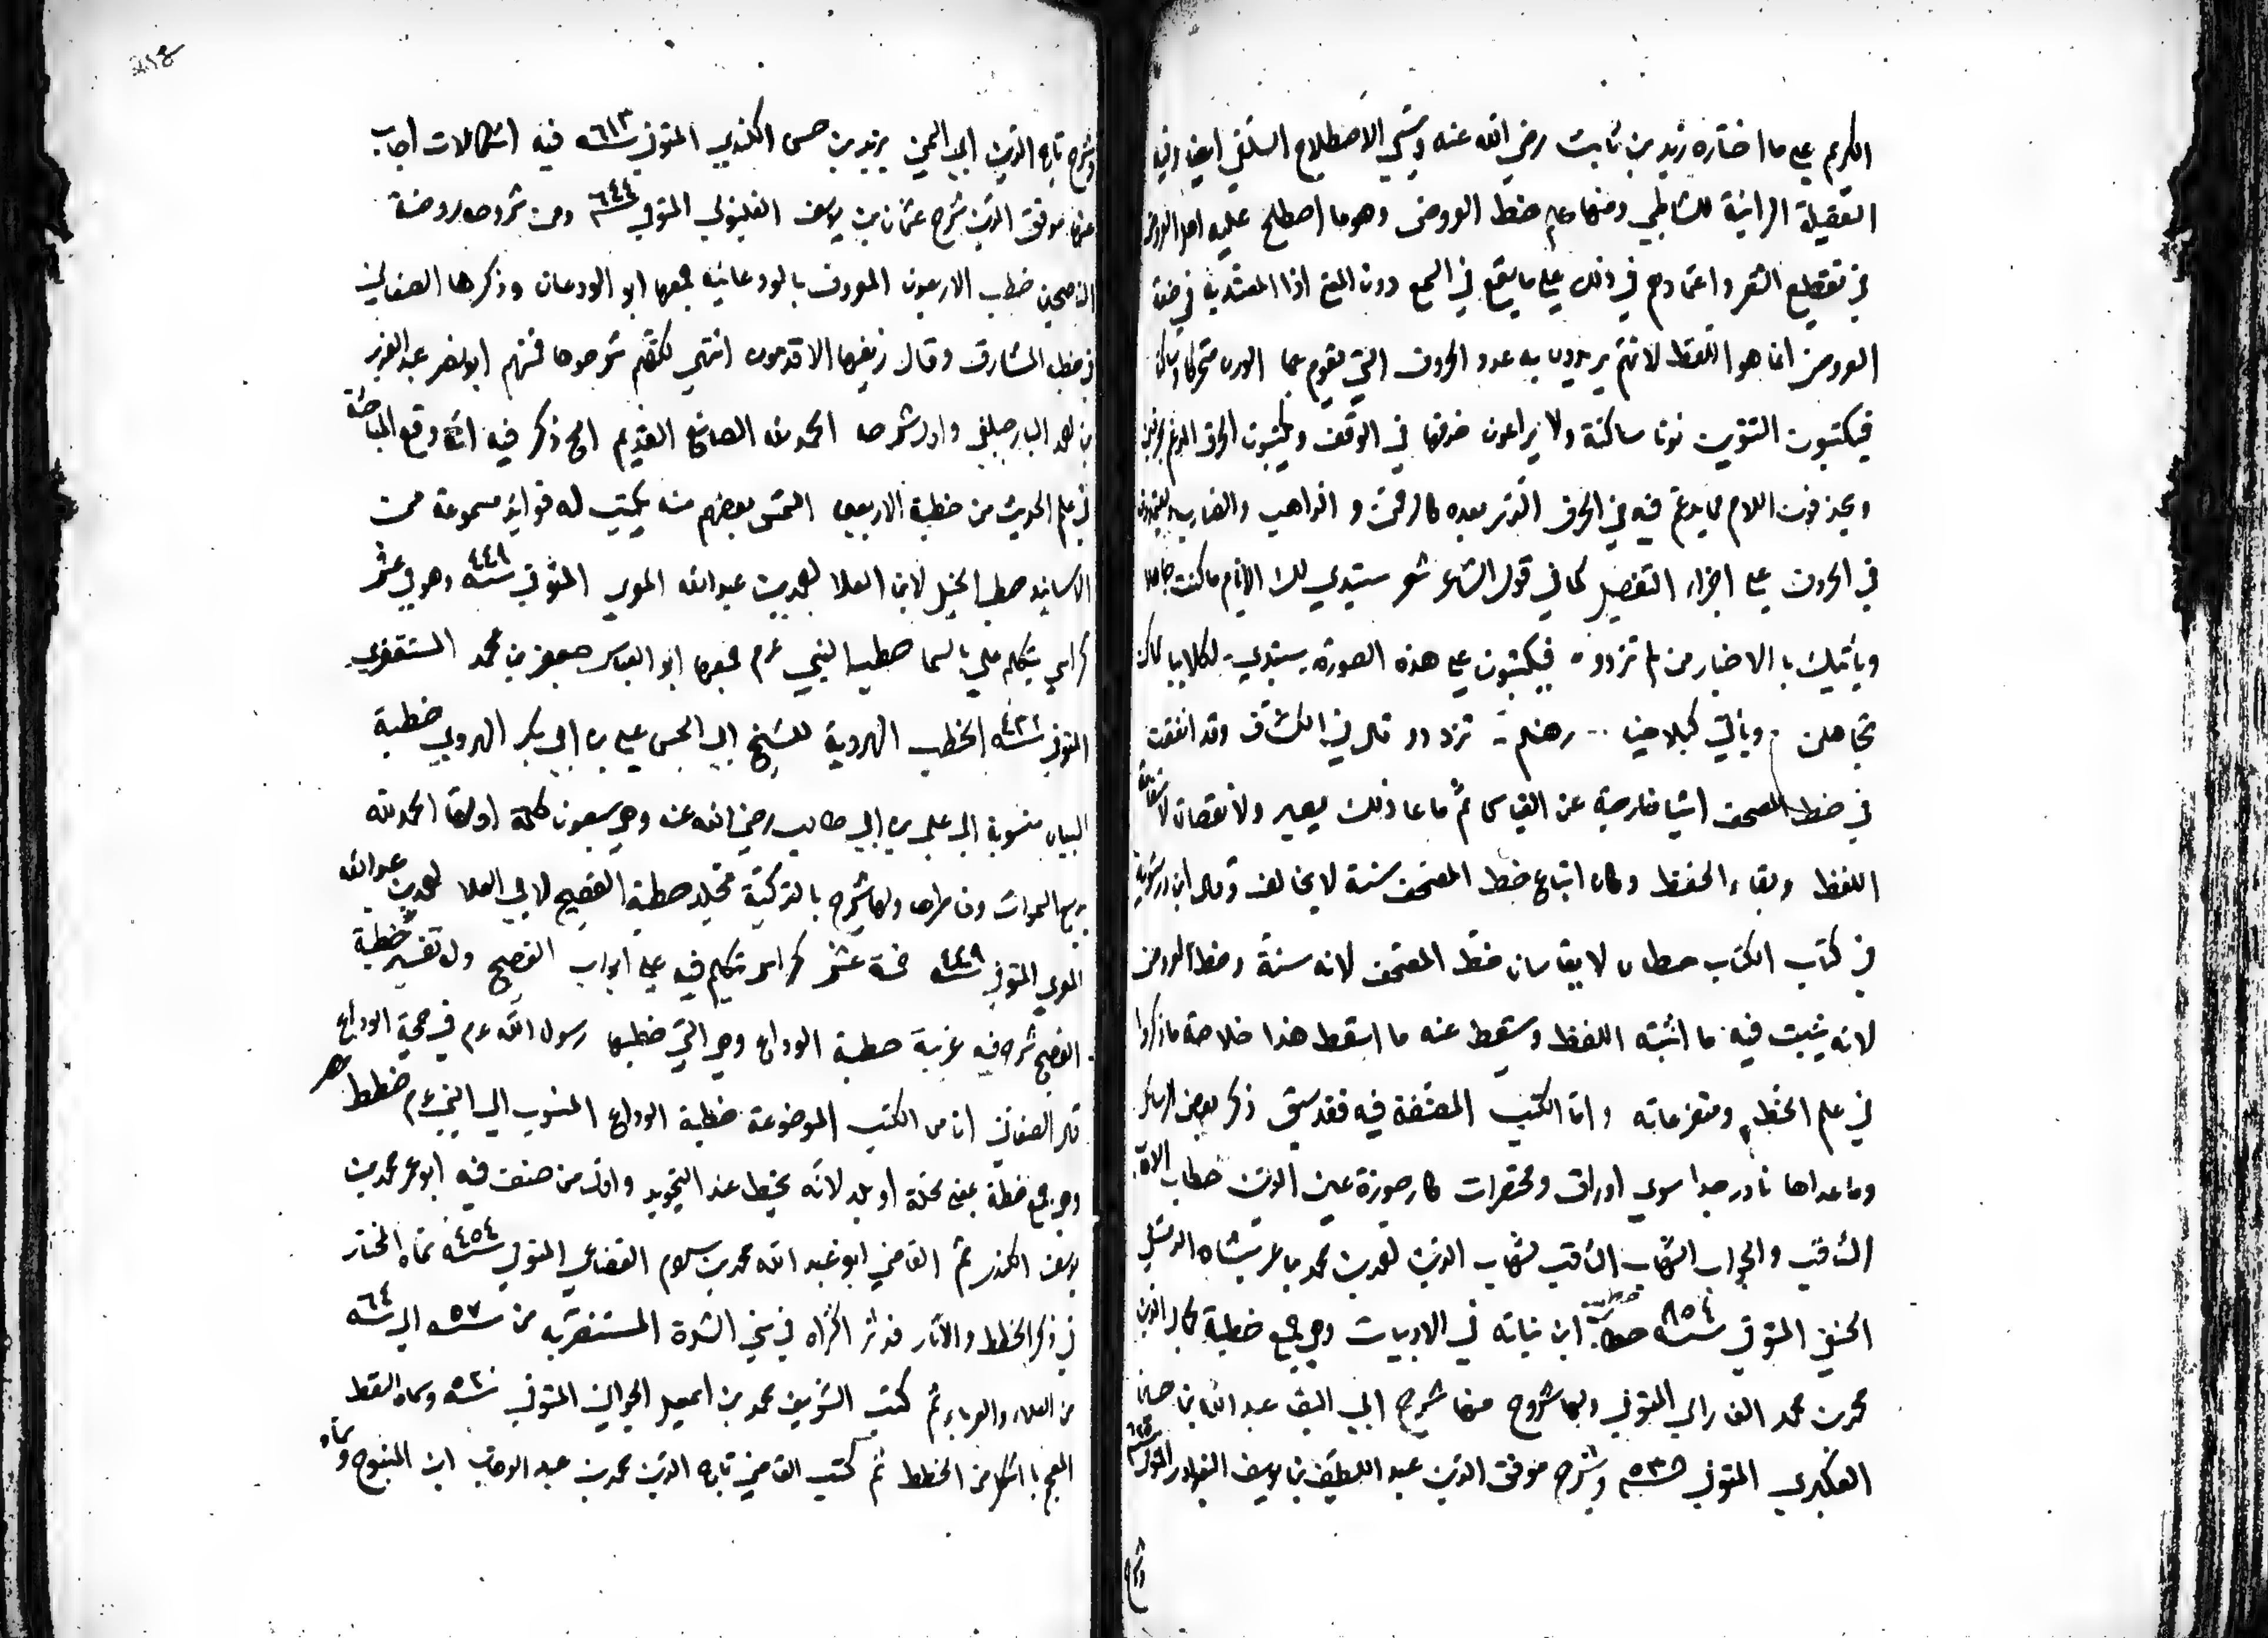 الكريم على ما اختاره زيد بن ثابت رضي الله عنه ويسمي الاصطلاح السلفي ايضا وفيه
العقيلة الرائية للشاطبي ومنها علم خط العروض وهو ما اصطلح عليه اهل العروض
في تقطيع الشعر واعتمادهم في ذلك على ما يقع في السمع دون المعنى اذا المعتد به في صنعة
العروض انما هو اللفظ لانهم يريدون به عدد الحروف التي يقوم بها الوزن متحركا وساكنا
فيكتبون التنوين نونا ساكنة ولا يراعون حذفها في الوقف ويكتبون الحرف المدغم بحرفين
ويحذفون اللام مما يدغم فيه في الحرف الذي بعده كالرحمن والذاهب والضارب ويعتمدون
في الحروف على اجزاء التفعيل كما في قول الشاعر شعر ستبدي لك الايام ما كنت جاهلا
ويأتيك با الاخبار من لم تزود فيكتبون على هذه الصورة ستبدي لكلاييا ماكن
تجاهلن ويأتي كبلاخبا رهنلم تزددو قال في الكشاف وقد اتفقت
في خط المصحف اشيا خارجة عن القياس ثم ما عاد ذلك بضير ولا نقصان لاستقامة
اللفظ وبقاء الحفظ وكان اتباع خط المصحف سنة لا يخالف وقال ابن درستويه
في كتاب الكتاب خطان لا يقاسان خط المصحف لانه سنة وخط العروض
لانه يثبت فيه ما اثبته اللفظ ويسقط عنه ما اسقط هذا خلاصة ما ذكروا
في علم الخط ومتفرعاته واما الكتب المصنفة فيه فقد سبق ذكر بعض الرسائل
وما عداها نادر جدا سوى اوراق ومختصرات كارجوزة عين الدين خطاب الاهاب
الثاقب والجواب الشهاب الثاقب لشهاب الدين احمد بن محمد باعربشاه الدمشقي
الحنفي المتوفي سنة ٨٥٤ خطب ابن نباته في الادبيات وهي جمع خطبة لكمال الدين
محمد بن محمد الفارابي المتوفي ولها شروح منها شرح ابي البقا عبد الله بن حسين
العكبري المتوفي سنة ٥٣٨ وشرح موفق الدين عبد اللطيف بن يوسف البغدادي المتوفي سنة ٦٢٩
وشرح
وشرح تاج الدين ابي اليمن يزيد بن حسن الكندي المتوفي سنة ٦١٣ فيه اشكالات اجاب
عنها موفق الدين شرح عثمان بن يوسف القليوبي المتوفي سنة ٦٤٤ ومن شروحه روضة
الناصحين خطب الاربعون المعروف بالودعانية جمعها ابو الودعان وذكرها الصغاني
في خطب المشارق وقال زيفها الاقدمون انتهى لكنهم شرحوها فمنهم ابو نصر عبد العزيز
بن احمد البارجيلغي واول شرحه الحمد لله الصانع القديم الخ ذكر فيه انه وقع المباحثة
في علم الحديث من خطبة الاربعين التمس بعضهم منه يكتب له فوائد مسموعة من
الاساتيد خطب الخيل لابن العلا احمد بن عبد الله المعري المتوفي سنة ٤٤٩ وهو في عشر
كراس يتكلم على بالسما خطب النبي عم جمعها ابو العباس جعفر بن محمد المستغفري
المتوفي سنة ٤٣٢ الخطب الهروية للشيخ ابي الحسن علي بن ابي بكر الهروي خطبة
البيان منسوبة الى علي بن ابي طالب رضي الله عنه وهي سبعون كلمة اولها الحمد لله
بديع السموات وفاطرها ولها شرح بالتركية مجلد خطبة الفصيح لابي العلا احمد بن عبد الله
المعري المتوفي سنة ٤٤٩ خمسة عشر كراس تكلم فيه على ابواب الفصيح وله تفسير خطبة
الفصيح شرح فيه غريبه خطبة الوداع وهي التي خطبها رسول الله عم في حجة الوداع
قال الصغاني انها من الكتب الموضوعة خطبة الوداع المنسوب الى النبي عم خطط مصر
وهي جمع خطة بمعنى محلة او بلد لانه يخط عند التحديد واول من صنف فيه ابو عمر محمد بن
يوسف الكندي ثم القاضي ابو عبد الله محمد بن سلام القضاعي المتوفي سنة ٤٥٤ سماه المختار
في ذكر الخطط والآثار فدثر اكثراه في سني الشدة المستنصرية من سنة ٥٧ الى سنة ٦٤
من الغلاء والوباء ثم كتب الشريف محمد بن اسمعيل الجواني المتوفي سنة ٥٢٠ وسماه النقط
المعجم با اشكل من الخطط ثم كتب القاضي تاج الدين محمد بن عبد الوهاب ابن المتوج وسماه